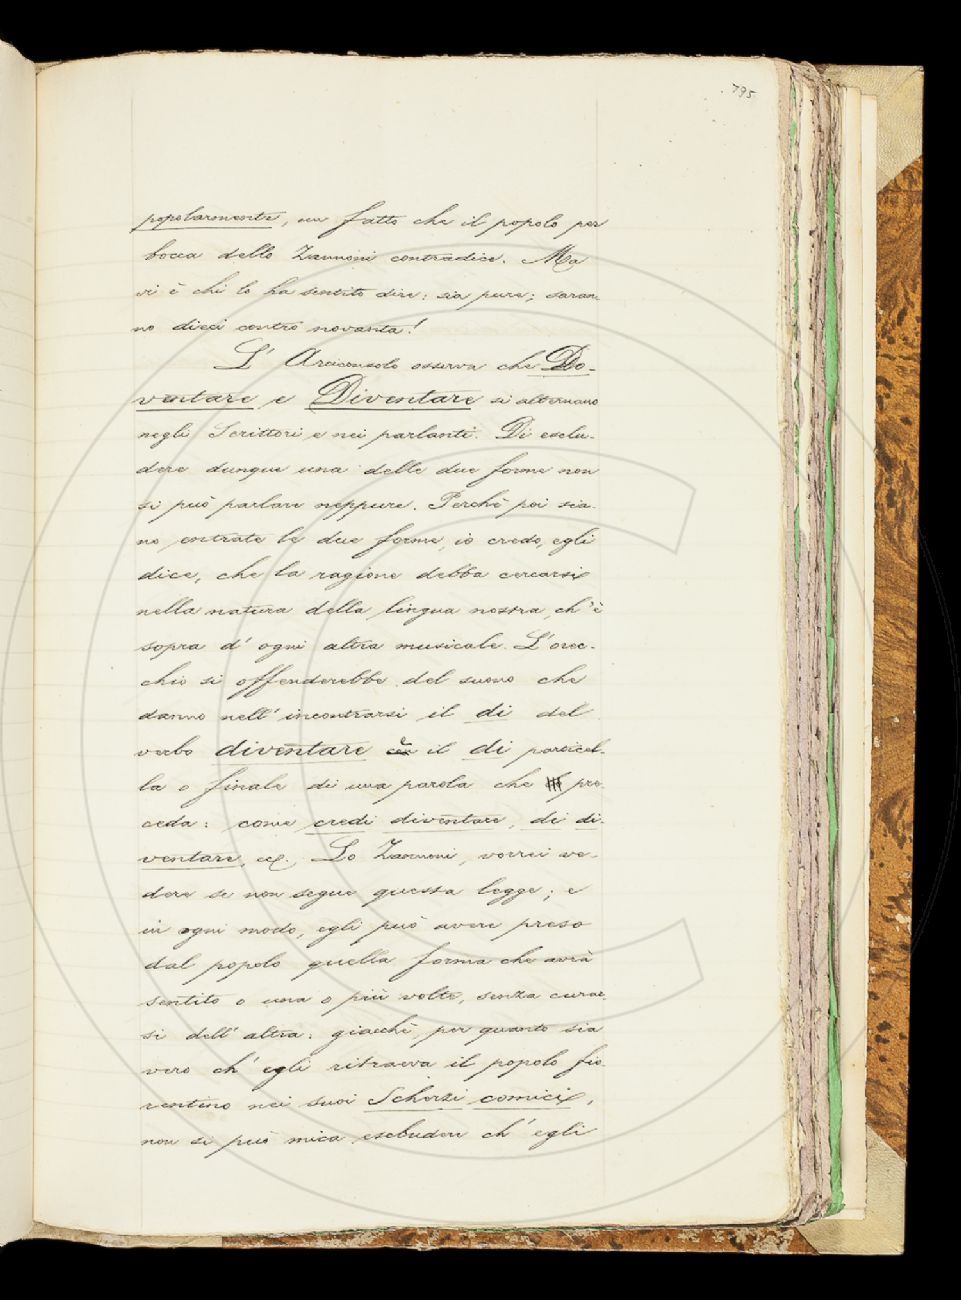 795
popolarmente, un fatto che il popolo per
bocca dello Zannoni contraddice. Ma
vi è chi lo ha sentito dire: sia pure; saran-
no dieci contro novanta!
L'Arciconsolo osserva che Do-
ventare e Diventare si alternano
negli Scrittori e nei parlanti. Di esclu-
dere dunque una delle due forme non
si può parlare neppure. Perchè poi sia-
no entrate le due forme, io credo, egli
dice, che la ragione debba cercarsi
nella natura della lingua nostra, ch'è
sopra d'ogni altra musicale. L'orec-
chio si offenderebbe del suono che
danno nell'incontrarsi il di del
verbo diventare e il di particel-
la o finale di una parola che pre-
ceda: come credi diventare, di di-
ventare, ecc. Lo Zannoni, vorrei ve-
dere se non segue questa legge; e
in ogni modo, egli può avere preso
dal popolo quella forma che avrà
sentito o una o più volte, senza curar-
si dell'altra: giacchè, per quanto sia
vero ch'egli ritraeva il popolo fio-
rentino nei suoi Scherzi comici,
non si può mica escludere ch'egli